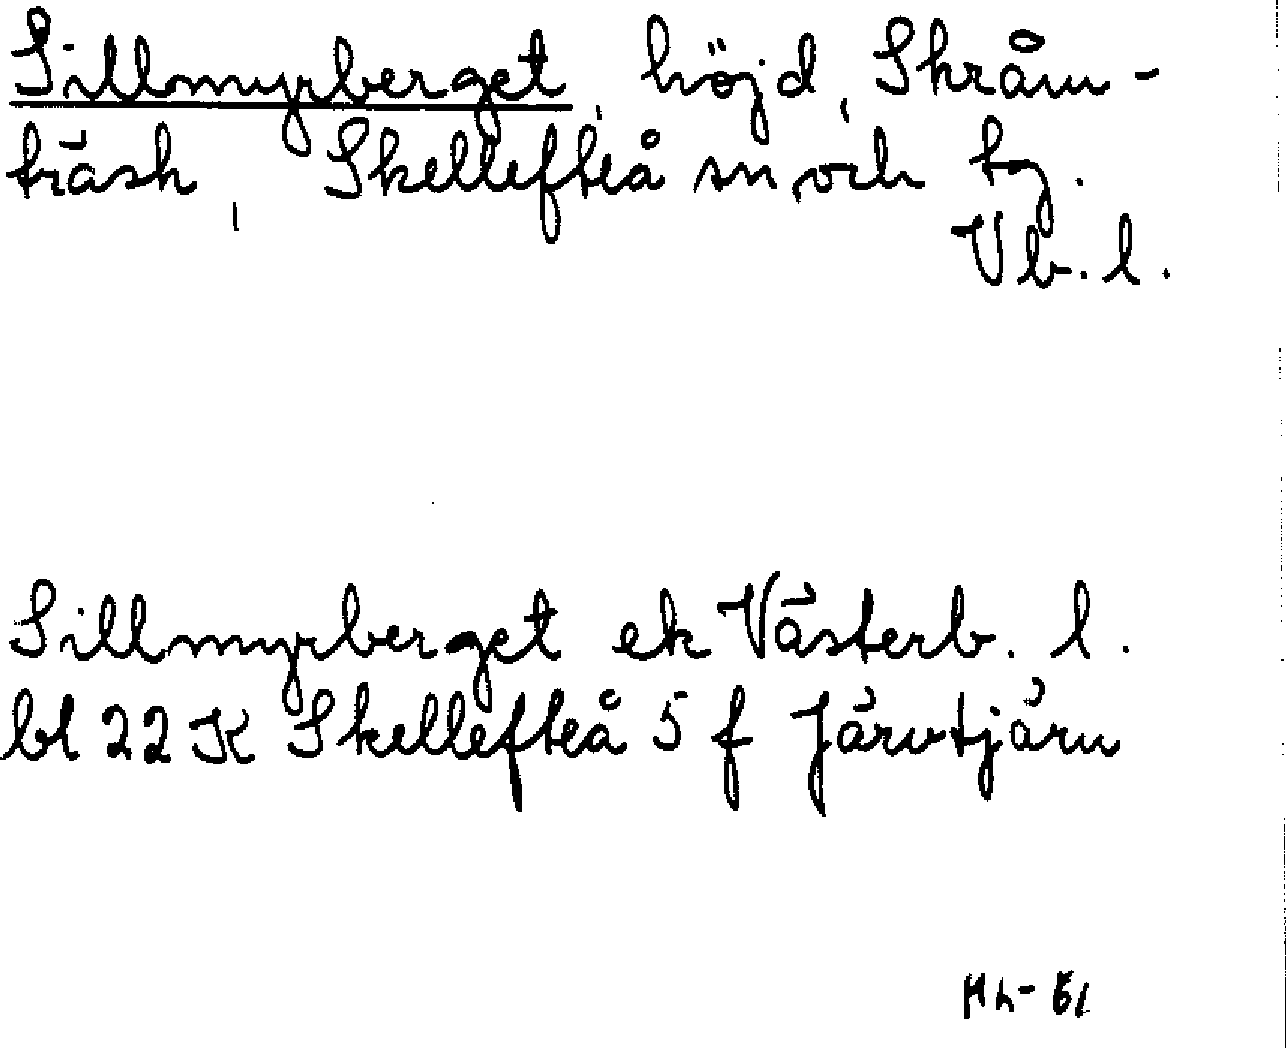 Sillmyrberget, höjd, Skråm-
träsk, Skellefteå sn, och tg.
Vb. l.
Sillmyrberget ek Västerb. l.
bl 22 K Skellefteå 5 f Järvtjärn